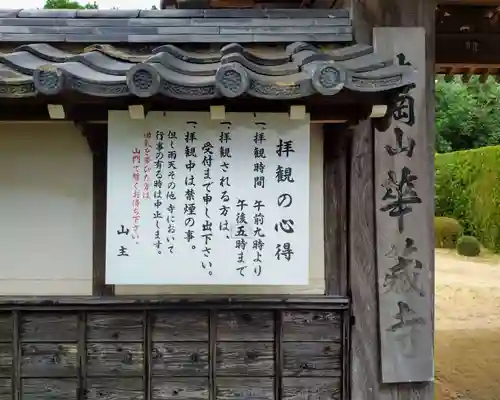 拝観の心得
一、拝観時間 午前九時より
午後五時まで
一、拝観される方は、
受付まで申し出下さい。
一、拝観中は禁煙の事。
但し雨天その他寺において
行事の有る時は中止します。
山主
山門で暫くお待ち下さい。
山華蔵寺